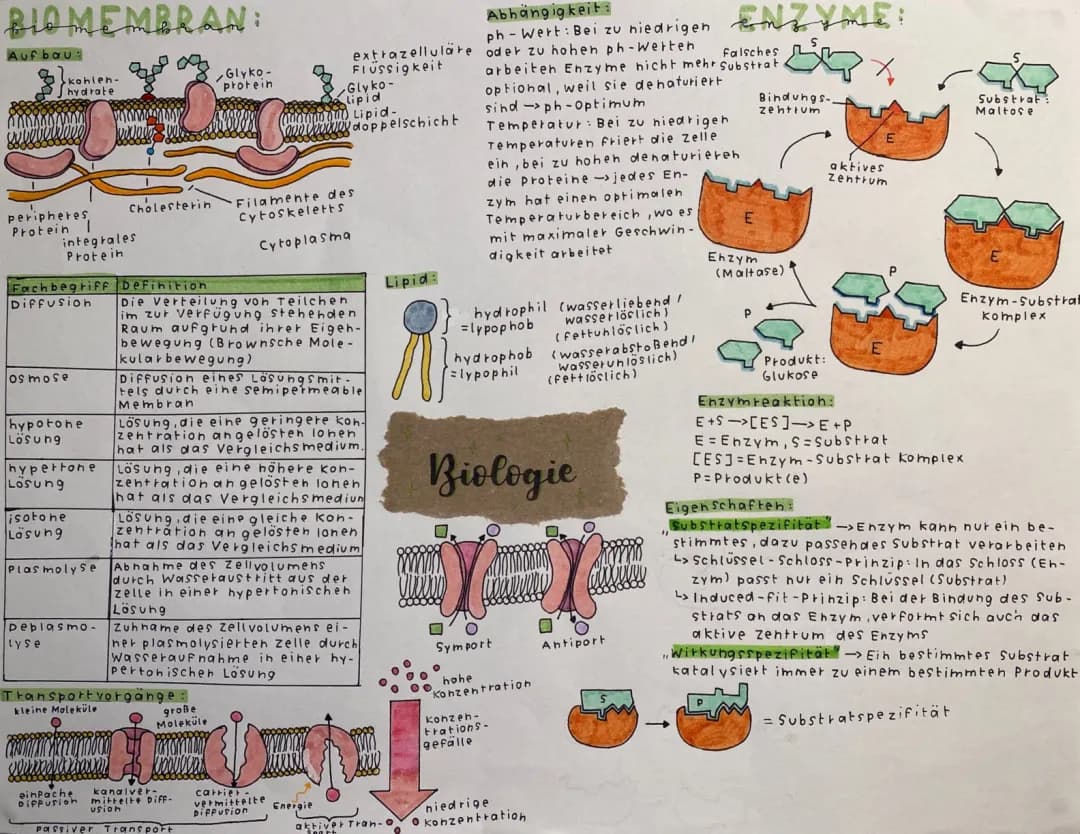 BIOMEMBRAN:
biomembran
Aufbau:
Kohlen-
hydrate
Glyko-
protein
extrazelluläre
Flüssigkeit
Glyko-
lipid
Lipid-
doppelschicht
peripheres
Protein
integrales
Protein
Cholesterin
Filamente des
Cytoskeletts
Cytoplasma
Fachbegriff Definition
Diffusion Die Verteilung von Teilchen
im zur Verfügung stehenden
Raum aufgrund ihrer Eigen-
bewegung (Brownsche Mole-
kularbewegung)
Osmose Diffusion eines Lösungsmit-
tels durch eine semipermeable
Membran
hypotone Lösung, die eine geringere Kon-
Lösung zentration an gelösten Ionen
hat als das Vergleichsmedium.
hypertone Lösung, die eine höhere Kon-
Lösung zentration an gelösten Ionen
hat als das Vergleichsmedium
isotone Lösung, die eine gleiche Kon-
Lösung zentration an gelösten Ionen
hat als das Vergleichsmedium
Plasmolyse Abnahme des Zellvolumens
durch Wasseraustritt aus der
Zelle in einer hypertonischen
Lösung
Deplasmo- Zuhname des Zellvolumens ei-
lyse ner plasmolysierten Zelle durch
Wasseraufnahme in einer hy-
pertonischen Lösung
Transportvorgänge:
kleine Moleküle
große
Moleküle
einfache
Diffusion
kanalver-
mittelte Diff-
usion
carrier-
vermittelte
Diffusion
Energie
passiver Transport
aktiver Tran-
sport
Abhängigkeit:
ph-Wert: Bei zu niedrigen
oder zu hohen ph-Werten
arbeiten Enzyme nicht mehr
optional, weil sie denaturiert
sind → ph-Optimum
Temperatur: Bei zu niedrigen
Temperaturen friert die Zelle
ein, bei zu hohen denaturieren
die Proteine → jedes En-
zym hat einen optimalen
Temperaturbereich, wo es
mit maximaler Geschwin-
digkeit arbeitet
Lipid:
hydrophil (wasserliebend/
=lypophob wasserlöslich)
(fettunlöslich)
hydrophob (wasserabstoßend/
=lypophil wasserunlöslich)
(fettlöslich)
Biologie
Symport
Antiport
hohe
Konzentration
Konzen-
trations-
gefälle
niedrige
Konzentration
ENZYME:
enzyme
Falsches
Substrat
S
Bindungs-
zentrum
E
aktives
Zentrum
S
Substrat:
Maltose
E
Enzym
(Maltase)
E
Enzym-Substrat
Komplex
P
E
P
Produkt:
Glukose
Enzymreaktion:
E+S → [ES] → E+P
E=Enzym, S=Substrat
[ES]=Enzym-Substrat Komplex
P=Produkt(e)
Eigenschaften:
„Substratspezifität" → Enzym kann nur ein be-
stimmtes, dazu passendes Substrat verarbeiten
↳ Schlüssel-Schloss-Prinzip: In das Schloss (En-
zym) passt nur ein Schlüssel (Substrat)
↳ Induced-fit-Prinzip: Bei der Bindung des Sub-
strats an das Enzym, verformt sich auch das
aktive Zentrum des Enzyms
„Wirkungsspezifität" → Ein bestimmtes Substrat
katalysiert immer zu einem bestimmten Produkt
S
P
= Substratspezifität